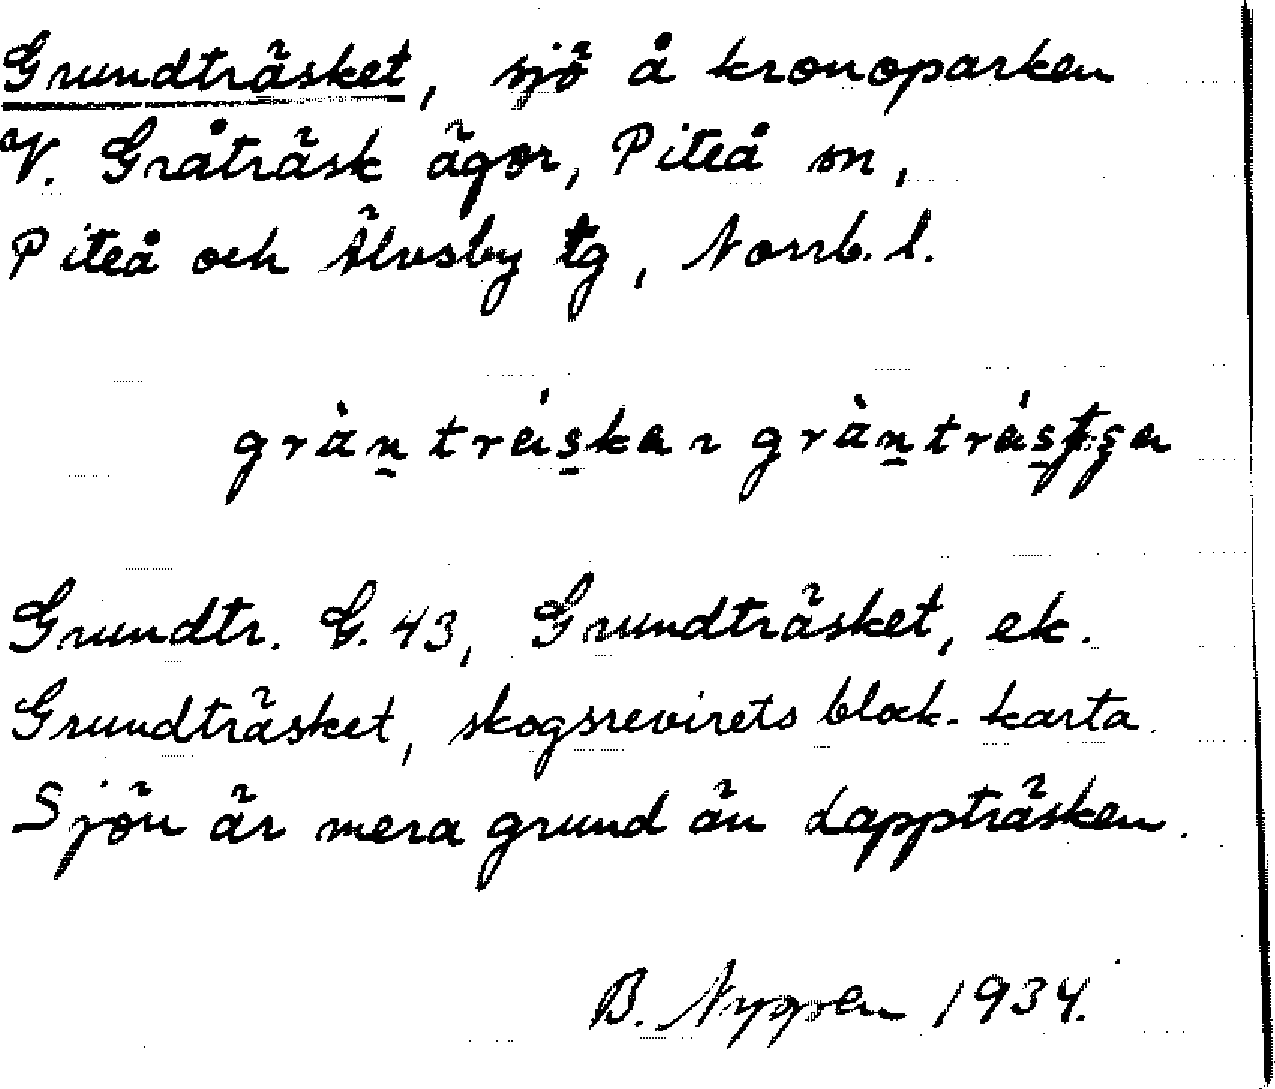 Grundträsket, sjö å kronoparken
V. Gråträsk ägor, Piteå sn,
Piteå och Älvsby tg, Norrb. l.
Grundtr. G. 43, Grundträsket, ek.
Grundträsket, skogsrevirets block-karta.
Sjön är mera grund än Lappträsken.
B. Nygren 1934.